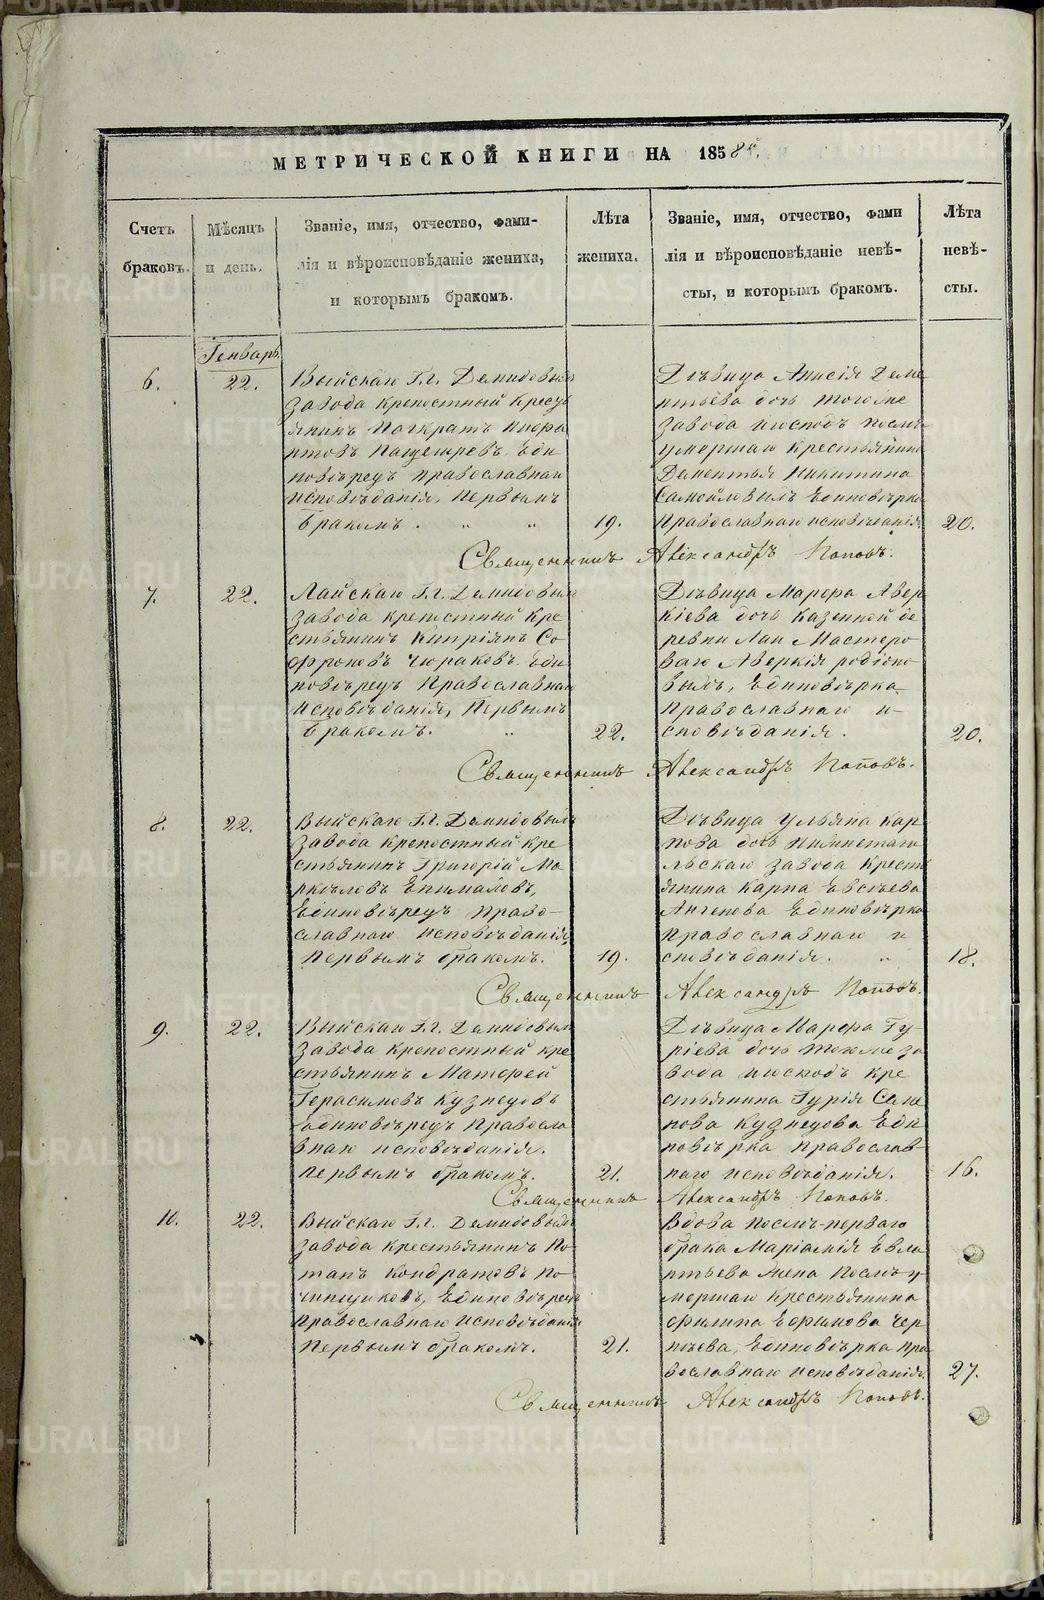 МЕТРИЧЕСКОЙ КНИГИ НА 1858й.
Счетъ
браковъ.
Мѣсяцъ
и день.
Званіе, имя, отчество, фами-
лія и вѣроисповѣданіе жениха,
и которымъ бракомъ.
Лѣта
жениха.
Званіе, имя, отчество, фами
лія и вѣроисповѣданіе невѣ-
сты, и которымъ бракомъ.
Лѣта
невѣ-
сты.
Генварь
6.
22.
Выйскаго Г.г. Демидовыхъ
завода крепостный кресть
янинъ Панкратъ Нифа
нтовъ Еди
новѣрецъ православнаго
исповѣданія, первымъ
бракомъ. " "
19.
Дѣвица Анисія Деме
нтьева дочь тогоже
завода изгосподъ послѣ
умершаго крестьянина
Дементья Никитина
Самойловыхъ Единовѣрка
Православнаго исповѣданія.
20.
Священникъ Александръ Поповъ.
7.
22.
Лайскаго Г.г. Демидовыхъ
завода крепостный кре
стьянинъ Кипріянъ Со
фроновъ Чюраковъ Еди
новѣрецъ Православнаго
Исповѣданія, Первымъ
бракомъ. "
22.
Дѣвица Марфа Авер
кіева дочь Казенной де
ревни Лаи Мастеро
ваго Аверкія родіоно
выхъ, Единовѣрка
Православнаго и-
сповѣданія.
20.
Священникъ Александръ Поповъ.
8.
22.
Выйскаго Г.г. Демидовыхъ
завода крепостный кре
стьянинъ Григорій Ма
ркѣловъ
Единовѣрецъ Право-
славнаго исповѣданія,
Первымъ бракомъ.
19.
Дѣвица Ульяна Кар
пова дочь Нижнетаги
льскаго завода Кресть
янина Карпа Евсѣева
Единовѣрка
Православнаго и
сповѣданія. "
18.
Священникъ Александръ Поповъ.
9.
22.
Выйскаго Г.г. Демидовыхъ
завода крепостный кре
стьянинъ Матфей
Герасимовъ Кузнецовъ
Единовѣрецъ Правосла
внаго исповѣданія.
первымъ бракомъ.
21.
Дѣвица Марфа Гу-
ріева дочь тогоже за
вода изгосподъ кре
стьянина Гурія Семе
нова Кузнецова Еди
новѣрка православ-
наго исповѣданія.
16.
Священникъ Александръ Поповъ.
10.
22.
Выйскаго Г.г. Демидовыхъ
завода крестьянинъ По
тапъ Кондратовъ По
Единовѣрецъ
Православнаго исповѣданія
Первымъ бракомъ.
21.
Вдова послѣ перваго
брака Маріамія Евла
мпьева жена послѣ у-
мершаго крестьянина
Филипа Ефимова Чер
Единовѣрка пра
вославнаго исповѣданія.
27.
Священникъ Александръ Поповъ.
METRIKI.GASO-URAL.RU